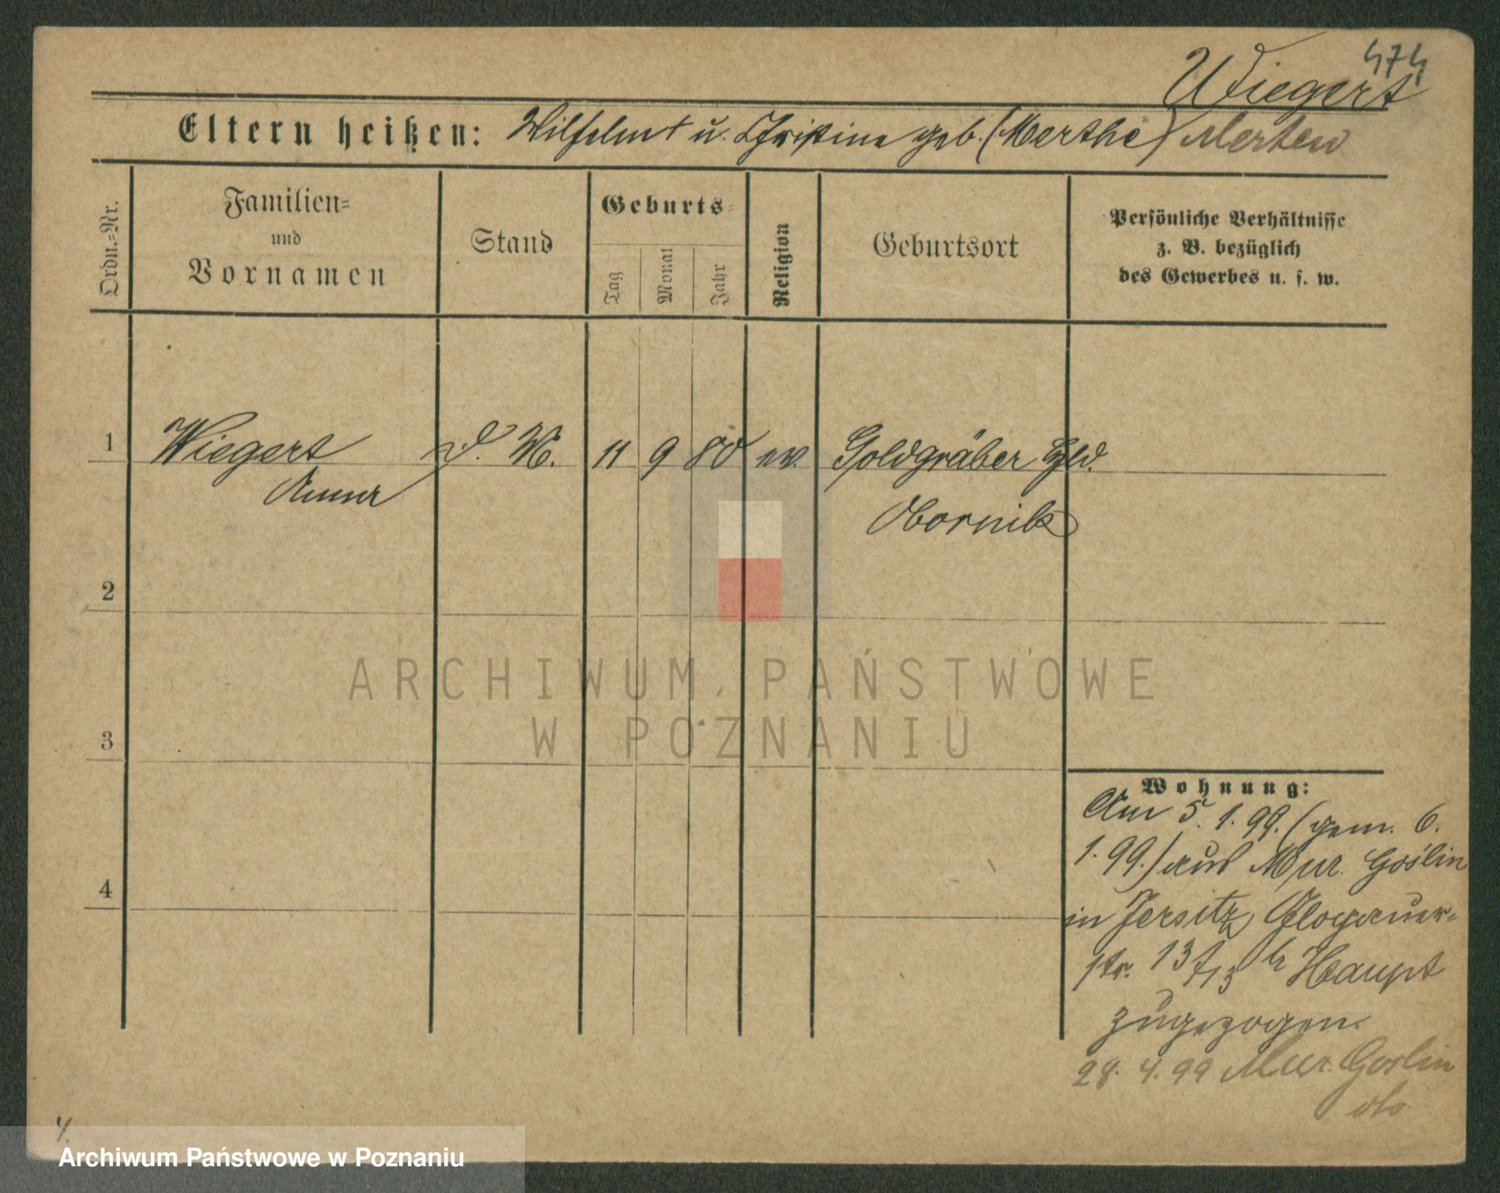 474
Wiegert
Eltern heißen: Wilhelm u. Christine geb. (Merthe) Merten
Ordn.-Nr.
Familien-
und
Vornamen
Stand
Geburts-
Tag
Monat
Jahr
Religion
Geburtsort
Persönliche Verhältnisse
z. B. bezüglich
des Gewerbes u. s. w.
1 Wiegert D. M. 11 9 80 ev. Goldgräber Hld.
Anna Obornik
2
ARCHIWUM PAŃSTWOWE
W POZNANIU
3
Wohnung:
Am 5. 1. 99. (gem. 6.
1. 99.) aus Mur. Goślin
in Jersitz, Glogauer-
str. 13/13 b Haupt
zugezogen.
28. 4. 99 Mur. Goslin
4
4.
Archiwum Państwowe w Poznaniu